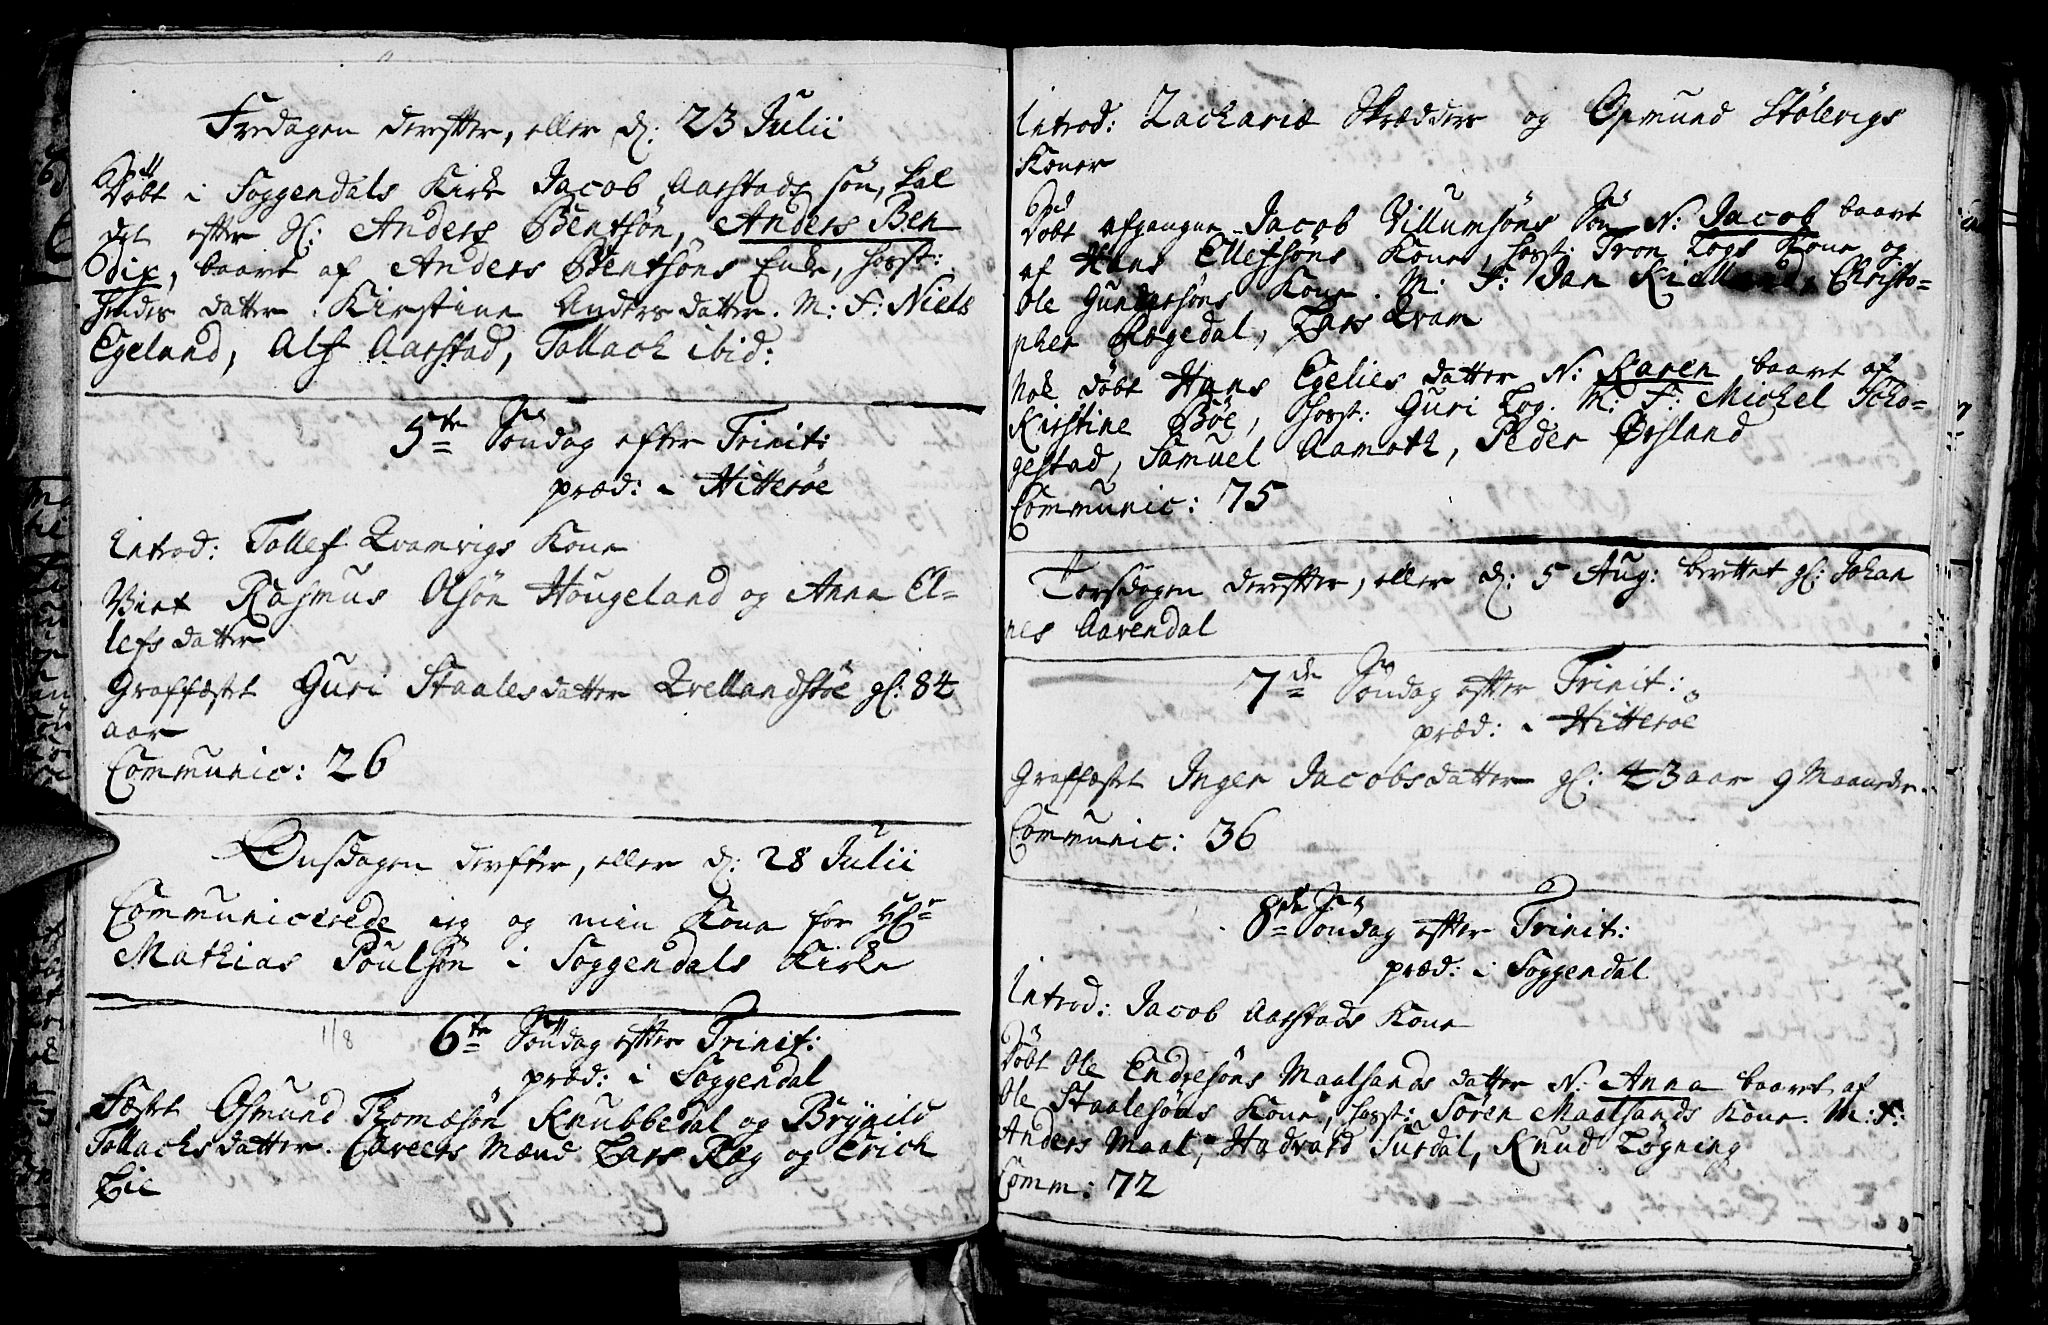 Fredagen derefter, eller d: 23 Julii
Døbt i Soggendals Kirke Jacob Aarstads søn, kal
det efter Hl: Anders Bentsøn, Anders Ben
dix, baaret af Anders Bentsøns Enke, hosst:
hendes datter Kirstine Andersdatter. M: F: Niels
Egeland, Alf Aarstad, Tollach ibid:
5te Søndag efter Trinit:
præd: i Hitterøe
Introd: Tollef Qvamvigs Kone
Viet Rasmus Olsøn Hougeland og Anna El-
lefsdatter
Graffæstet Guri Staalesdatter Qvellandstøe gl: 84
aar
Communic: 26
Onsdagen derefter, eller d: 28 Julii
Communicerede ieg og min Kone for Hr
Mathias Poulsøn i Soggendals Kirke
1/8
6te Søndag efter Trinit:
præd: i Soggendal
Fæstet Osmund Thomesøn Knubbedal og Brynild
Tollachsdatter. Caveers Mænd Lars Ræg og Erich
Lie
Introd: Zachariæ Skrædders og Osmund Stølevigs
Koner
Døbt afgangne Jacob Villumsøns Søn N: Jacob baaret
af Hans Ellefsøns Kone, hosst: Tron Logs Kone og
Ole Gundersøns Kone. M: F: Jan Kielland, Christo-
pher Regedal, Lars Qvam
Nok døbt Hans Egelies datter N: Karen baaret af
Kirstine Bøe, hosst: Guri Log. M: F: Michel Scho-
gestad, Samuel Aamoth, Peder Ørsland
Communic: 75
Torsdagen derefter, eller d: 5 Aug: berettet gl: Johan
nes Aarendal
7de Søndag efter Trinit:
præd: i Hitterøe
Graffæstet Inger Jacobsdatter gl: 43 aar 9 Maaneder.
Communic: 36
8de Søndag efter Trinit:
præd: i Soggendal
Introd: Jacob Aarstads Kone
Døbt Ole Endresøns Maalsands datter N: Anna baaret af
Ole Staalesøns Kone, hosst: Søren Maalsands Kone. M: F:
Anders Maal, Hadvard Surdal, Knud Løgning
Comm: 72